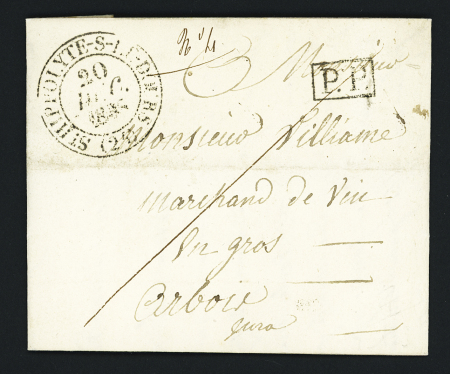 ST HIPPOLYTE-S-LE-DOUBS (24)
20
DEC.
Monsieur
P.P.
Monsieur Villiame
marchand de vin
en gros
Arbois
Jura